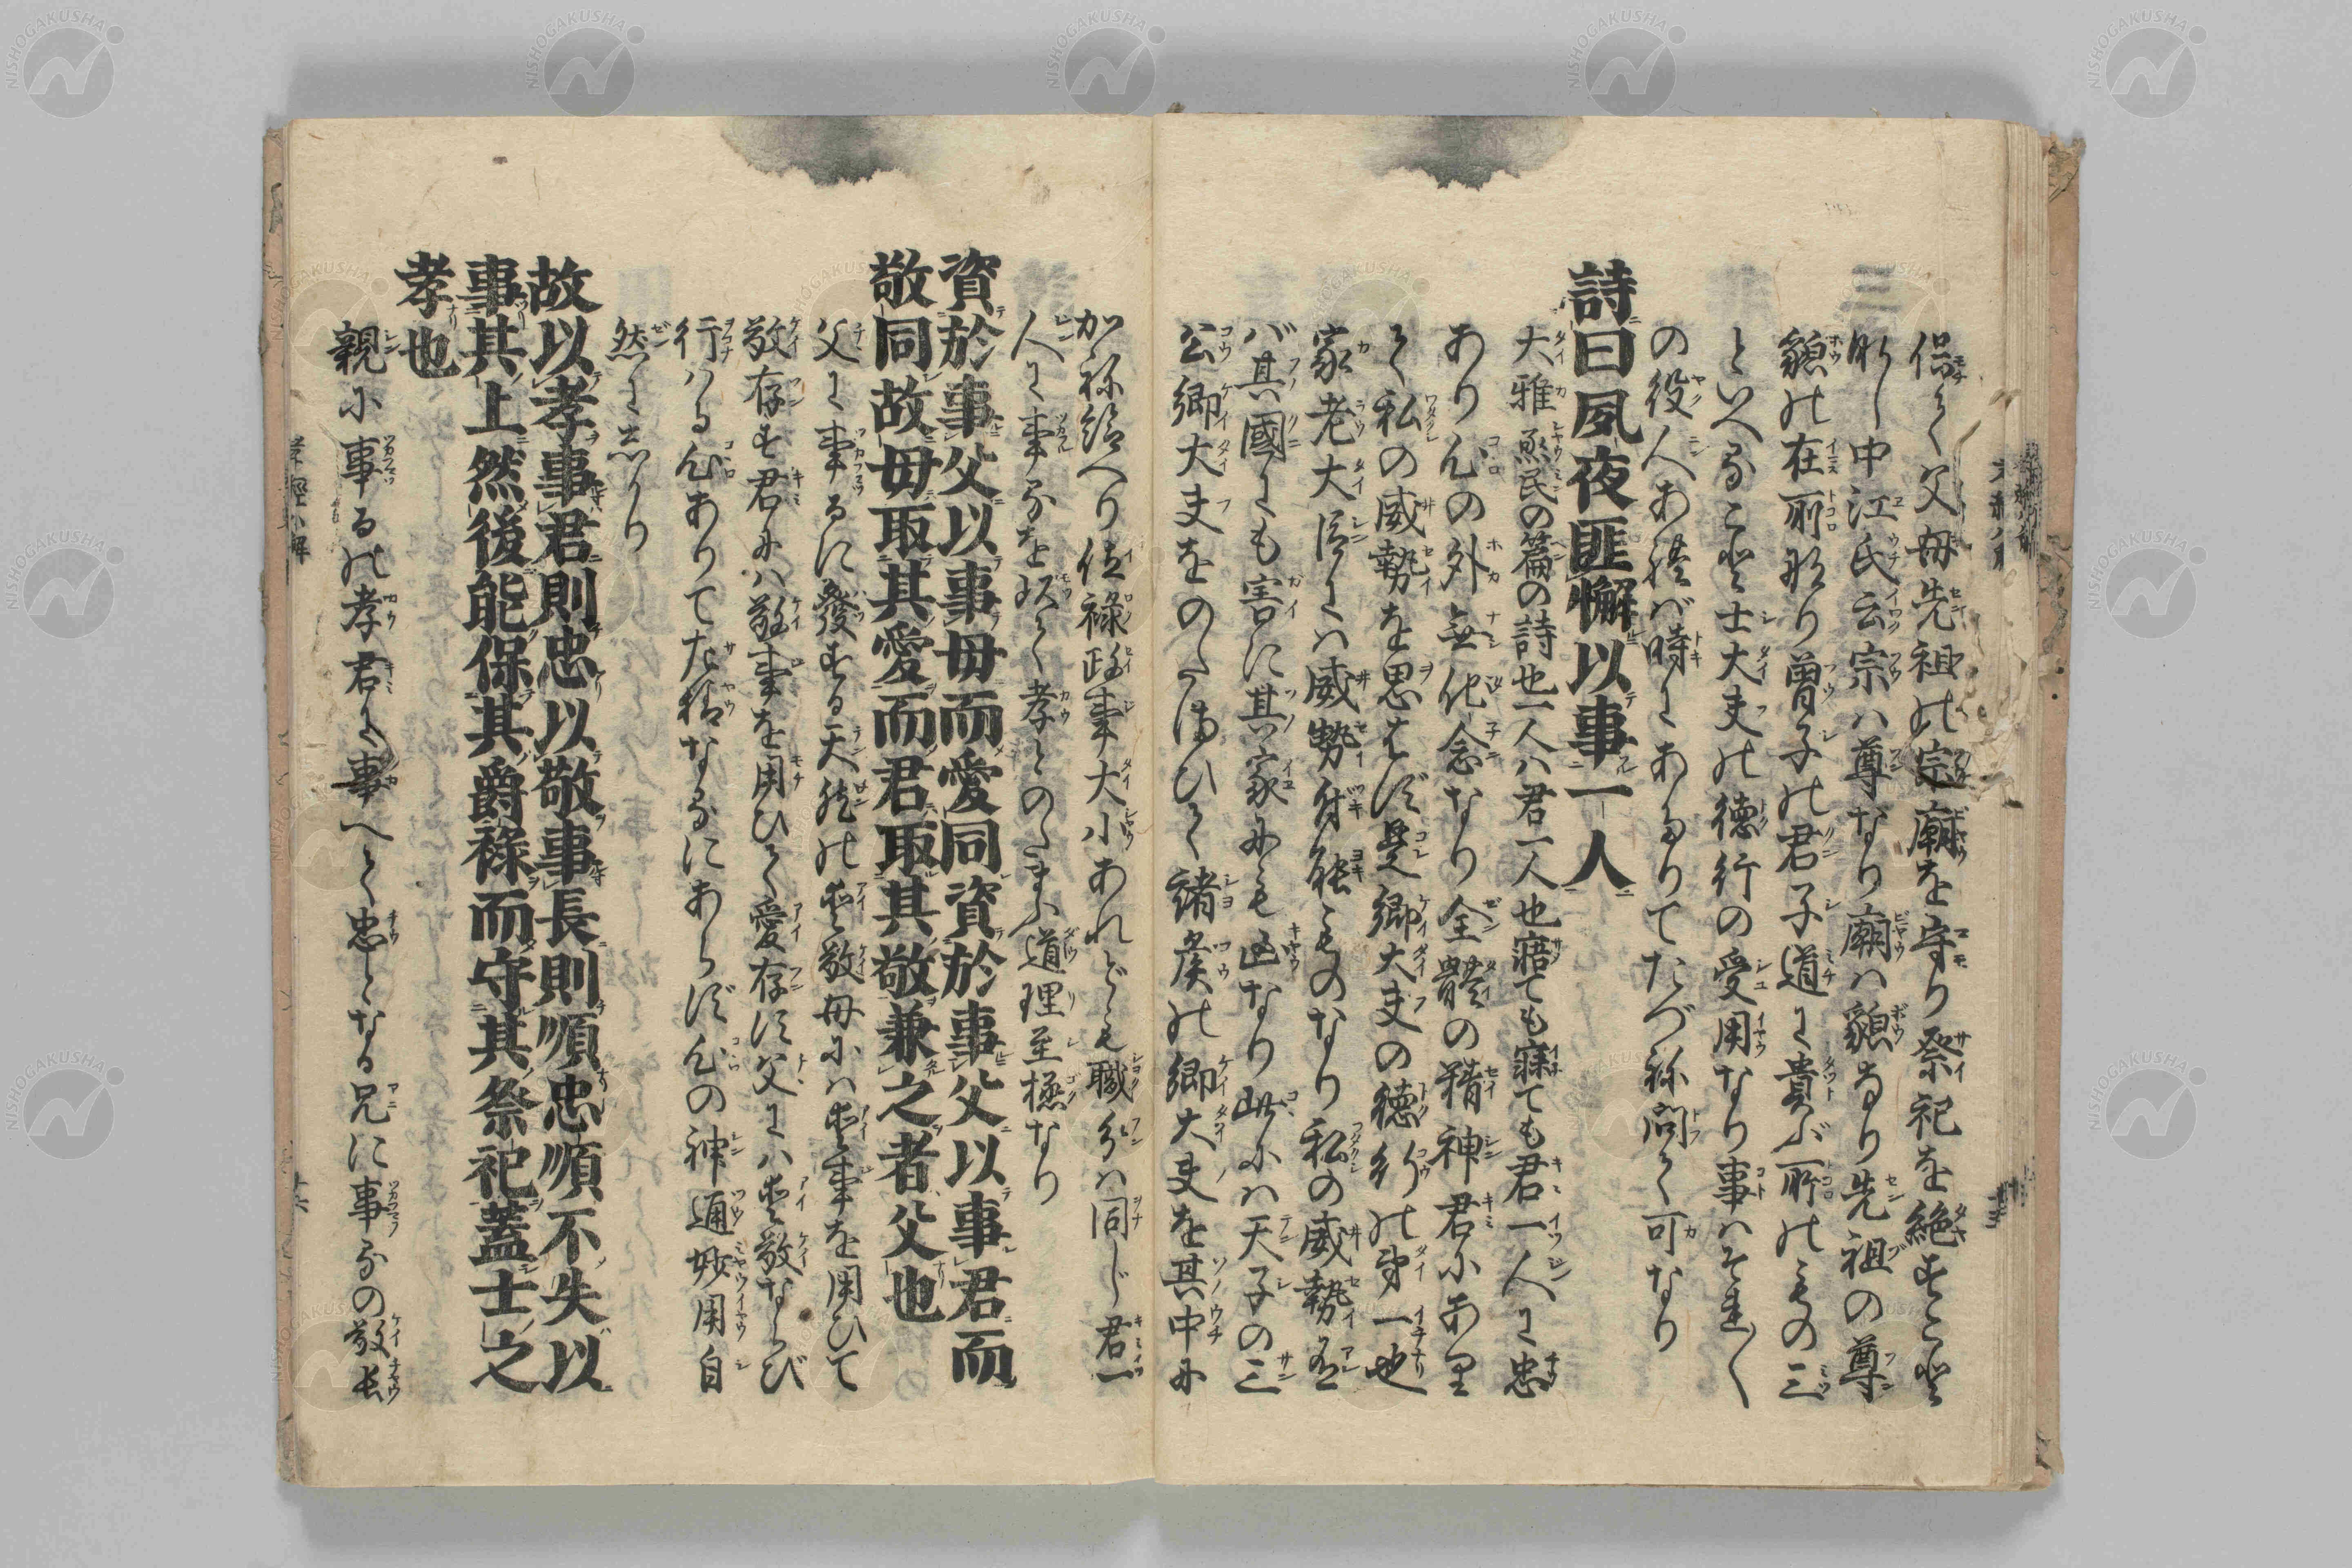 侶て父母先祖の宗廟を守り祭祀を絶すこと
なし中江氏云宗ハ尊なり廟ハ貌なり先祖の尊
貌の在所なり曽子の君子道に貴ぶ所のもの三
といへるこゝ士大夫の徳行の受用なり事ハそれ〳〵
の役人あれば時にあたりてたづね問て可なり
詩曰夙夜匪懈以事一人
大雅烝民の篇の詩也一人ハ君一人也寤ても寐ても君一人に忠
あり心の外無他念なり全體の精神君にあり
て私の威勢を思はず是卿大夫の徳行の第一也
家老大臣にハ威勢付能ものなり私の威勢有
バ其國にも害に其家にも凶なり此にハ天子の三
公卿大夫をのたまひて諸侯の卿大夫を其中に
かね給へり位禄政事大小あれども職分ハ同じ君一
人に事るを以て孝とのたまふ道理至極なり
資於事父以事母而愛同資於事父以事君而
敬同故母取其愛而君取其敬兼之者父也
父に事るに發する天然の愛敬母にハ愛事を用ひて
敬存す君にハ敬事を用ひて愛存す父にハ愛敬ならび
行ハる心ありてなるにあらず心の神通妙用自
然に出り
故以孝事君則忠以敬事長則順忠順不失以
事其上然後能保其爵祿而守其祭祀蓋士之
孝也
親に事るの孝君に事へて忠となる兄に事るの敬長